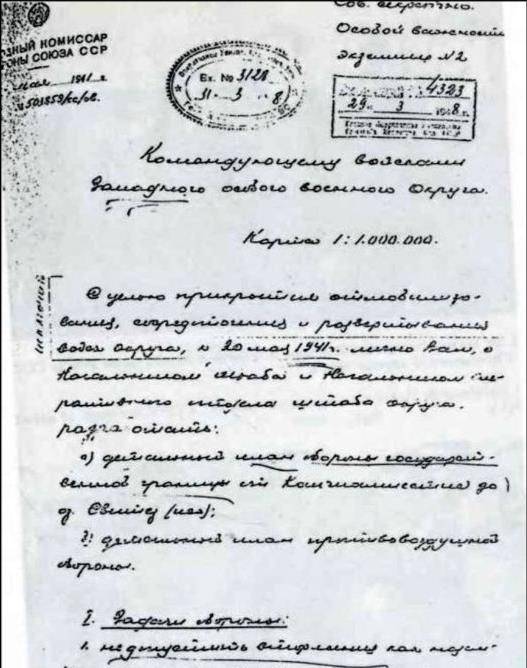 Сов. секретно.
Особой важности
Экземпляр №2
НЫЙ КОМИССАР
ОНЫ СОЮЗА ССР
мая 1941 г.
№ 503859/сс/ов.
Вх. № 3128
31. 3 8
4323
29 3 1948 г.
Командующему войсками
Западного особого военного Округа.
Карта 1:1.000.000.
С целью прикрытия отмобилизо-
вания, сосредоточения и развертывания
войск округа, к 20 мая 1941 г. лично Вам, с
Начальником штаба и Начальником опе-
ративного отдела штаба округа
разработать:
а) детальный план обороны государст-
венной границы от Капчиамиестис до
д. Свитез (иск);
б) детальный план противовоздушной
обороны.
I. Задачи обороны:
1. не допустить вторжения как назем-